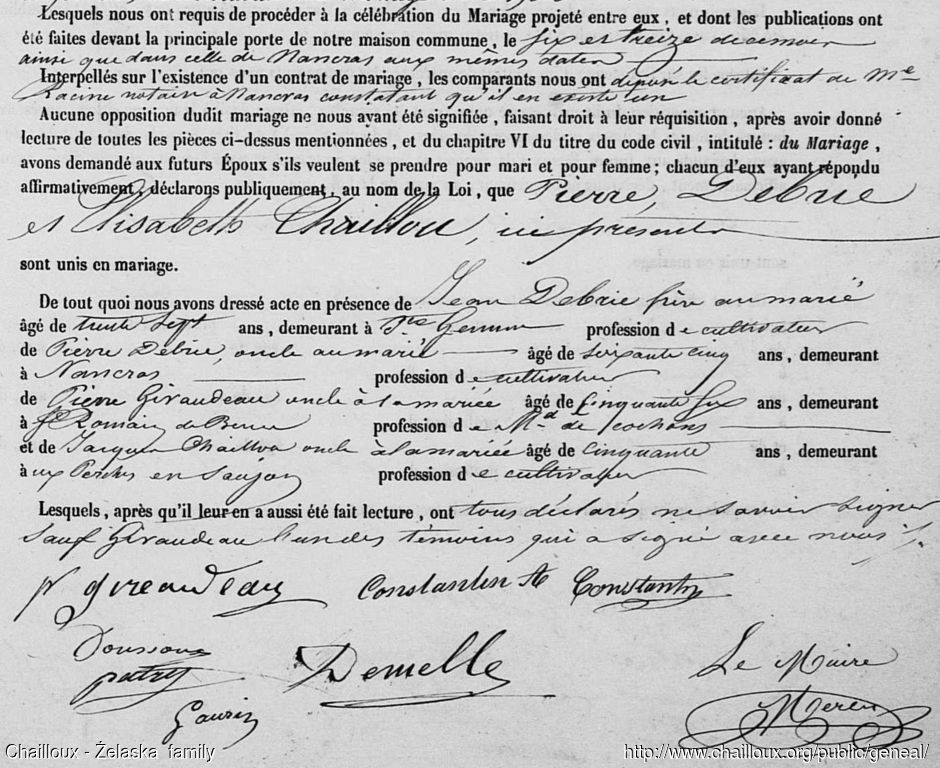 Lesquels nous ont requis de procéder à la célébration du Mariage projeté entre eux, et dont les publications ont
été faites devant la principale porte de notre maison commune, le six et treize décembre
ainsi que dans celle de Nancras aux mêmes dates
Interpellés sur l'existence d'un contrat de mariage, les comparants nous ont déposé le certificat de Me
Racine notaire à Nancras constatant qu'il en existe un
Aucune opposition dudit mariage ne nous ayant été signifiée, faisant droit à leur réquisition, après avoir donné
lecture de toutes les pièces ci-dessus mentionnées, et du chapitre VI du titre du code civil, intitulé : du Mariage,
avons demandé aux futurs Époux s'ils veulent se prendre pour mari et pour femme ; chacun d'eux ayant répondu
affirmativement, déclarons publiquement, au nom de la Loi, que Pierre, Debrie
et Elisabeth Chaillou, ici presents
sont unis en mariage.
De tout quoi nous avons dressé acte en présence de Jean Debrie frère au marié
âgé de trente sept ans, demeurant à Ste Gemme profession de cultivateur
de Pierre Debrie, oncle au marié âgé de soixante cinq ans, demeurant
à Nancras profession de cultivateur
de Pierre Giraudeau oncle à la mariée âgé de Cinquante six ans, demeurant
à St Romain de Benet profession de Md de cochons
et de Jacques Chaillou oncle à la mariée âgé de Cinquante ans, demeurant
à ux Perches en Saujon profession de cultivateur
Lesquels, après qu'il leur en a aussi été fait lecture, ont tous déclarés ne savoir signer
sauf Giraudeau l'un des témoins qui a signé avec nous
p gireaudeau Constantin A Constantin
patry Demelle Le Maire
Chailloux - Želaska family http://www.chailloux.org/public/geneal/